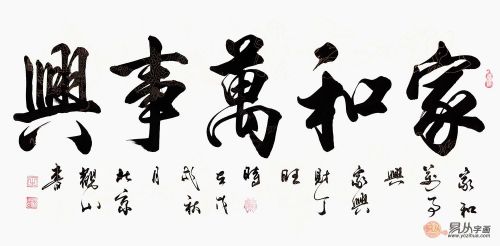 家和萬事興
家和
萬事
興
家興
財丁
旺
時
在戊
戌秋
月
北京
觀山
書
易从字画
www.yczihua.com